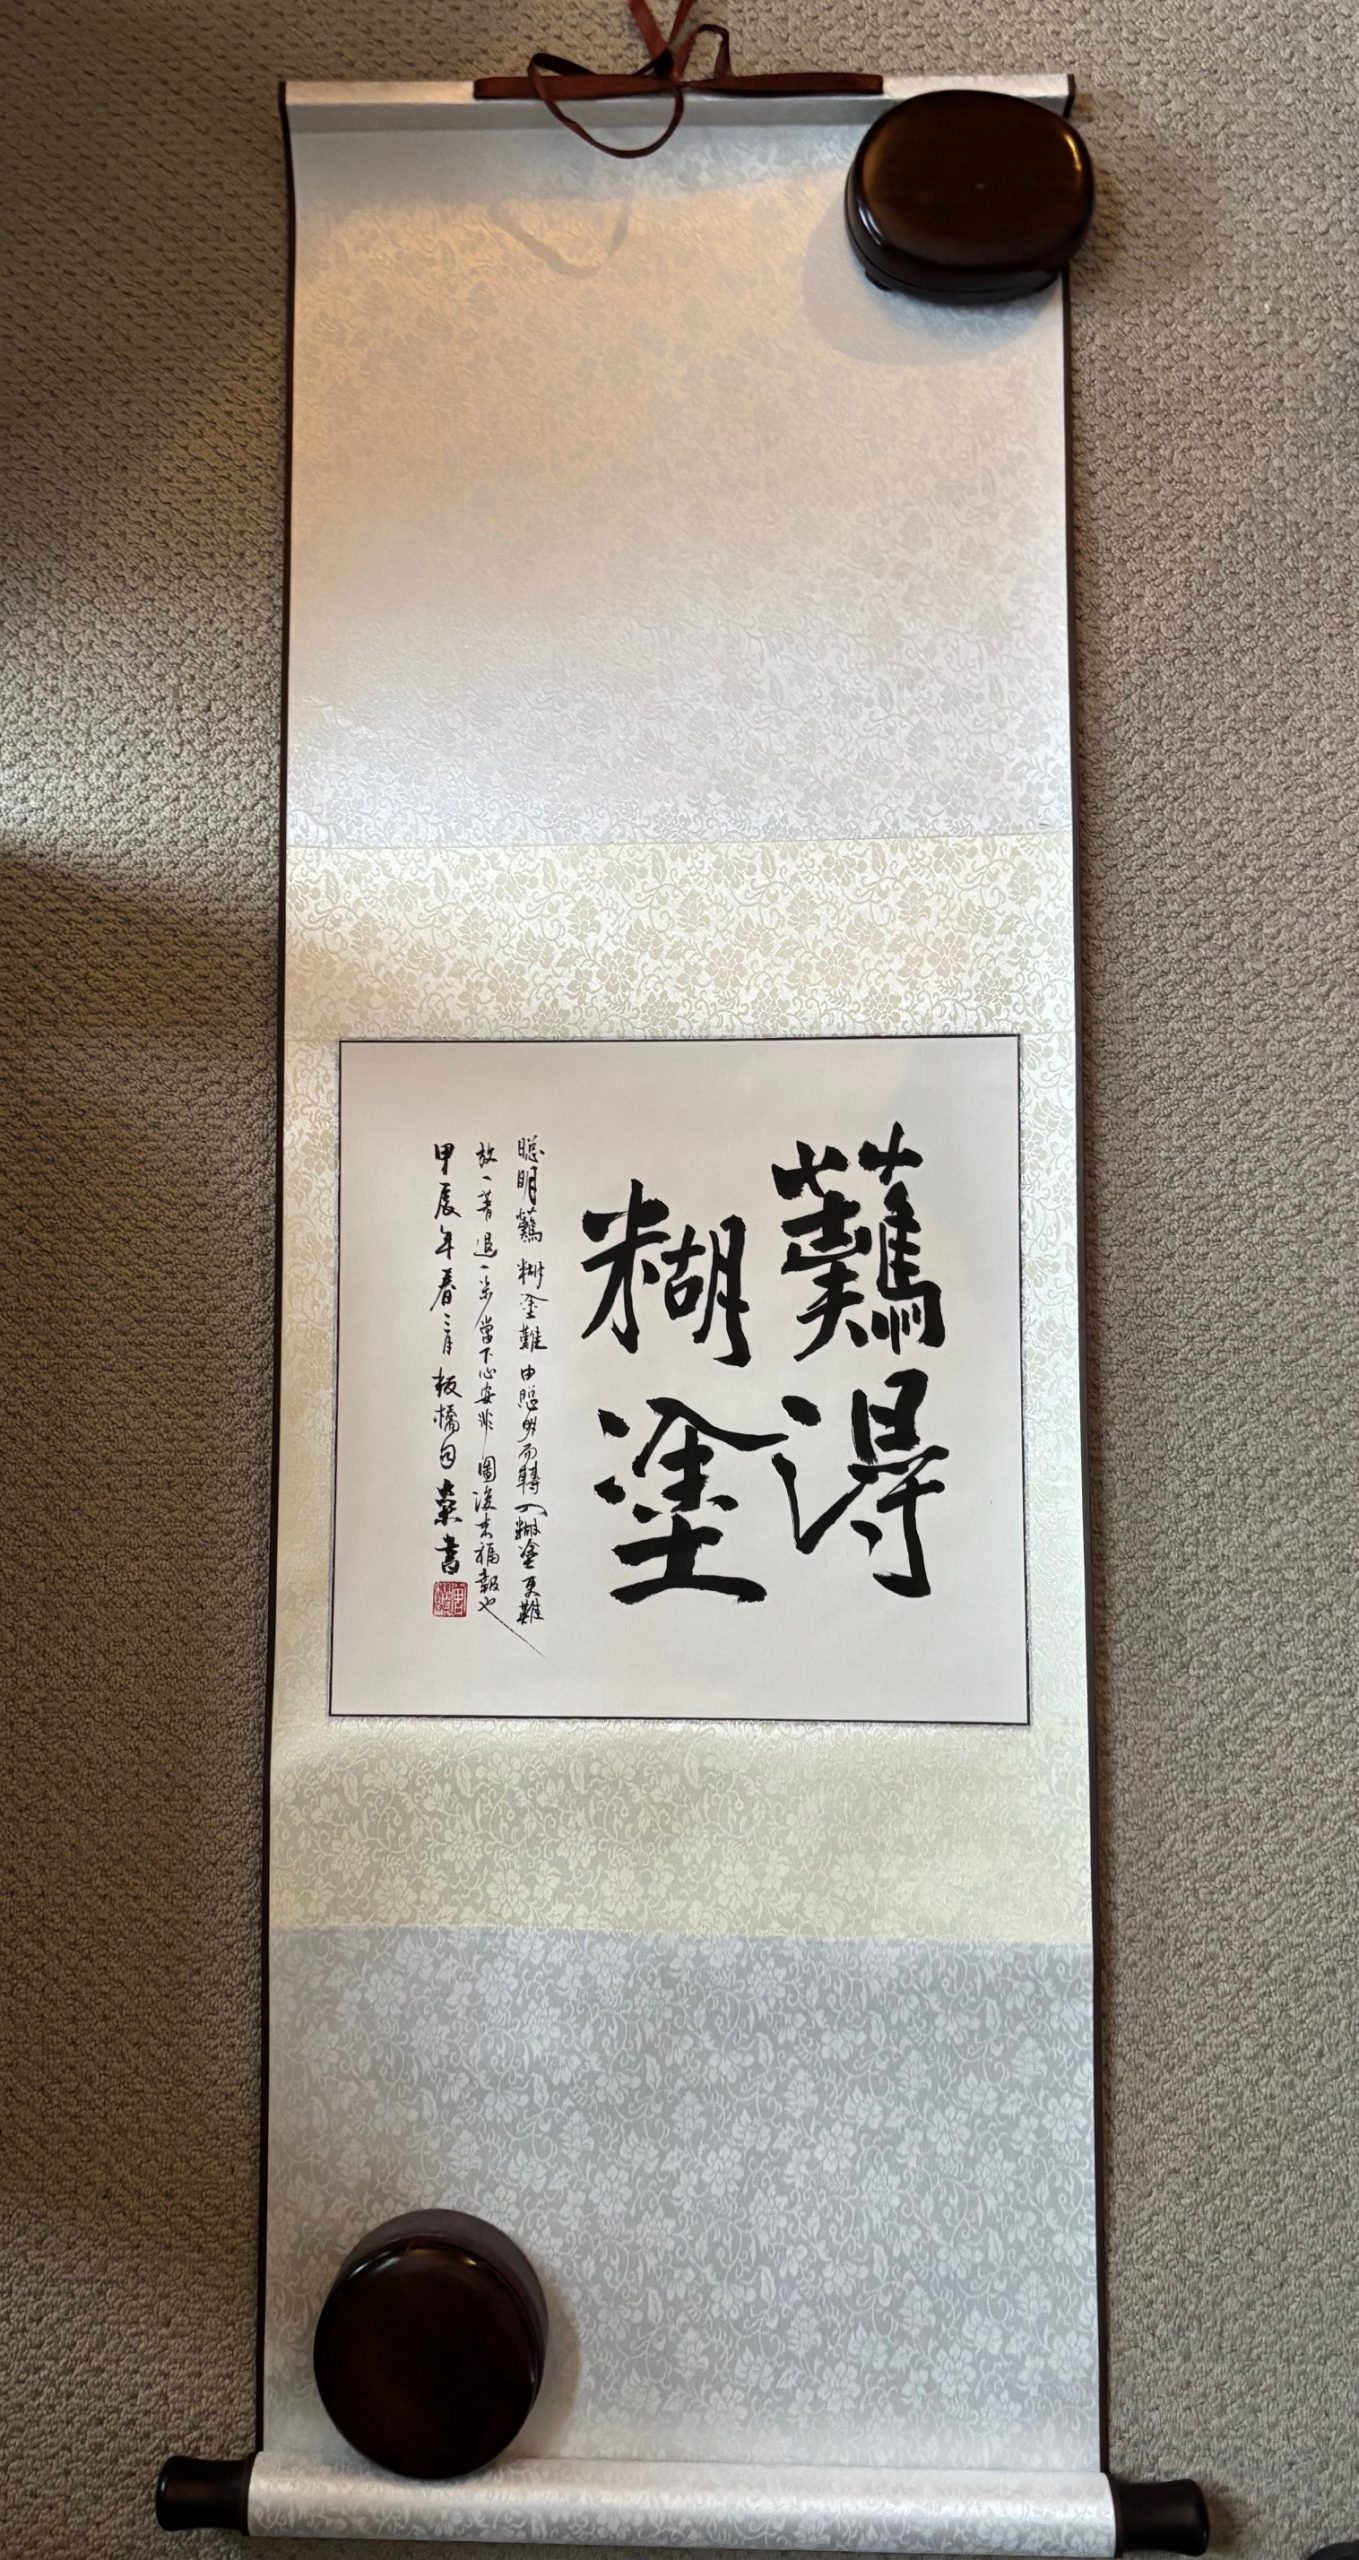 難得
糊塗
聰明難糊塗難由聰明而轉入糊塗更難
放一著退一步當下心安非圖後來福報也
甲辰年春三月板橋句榮書